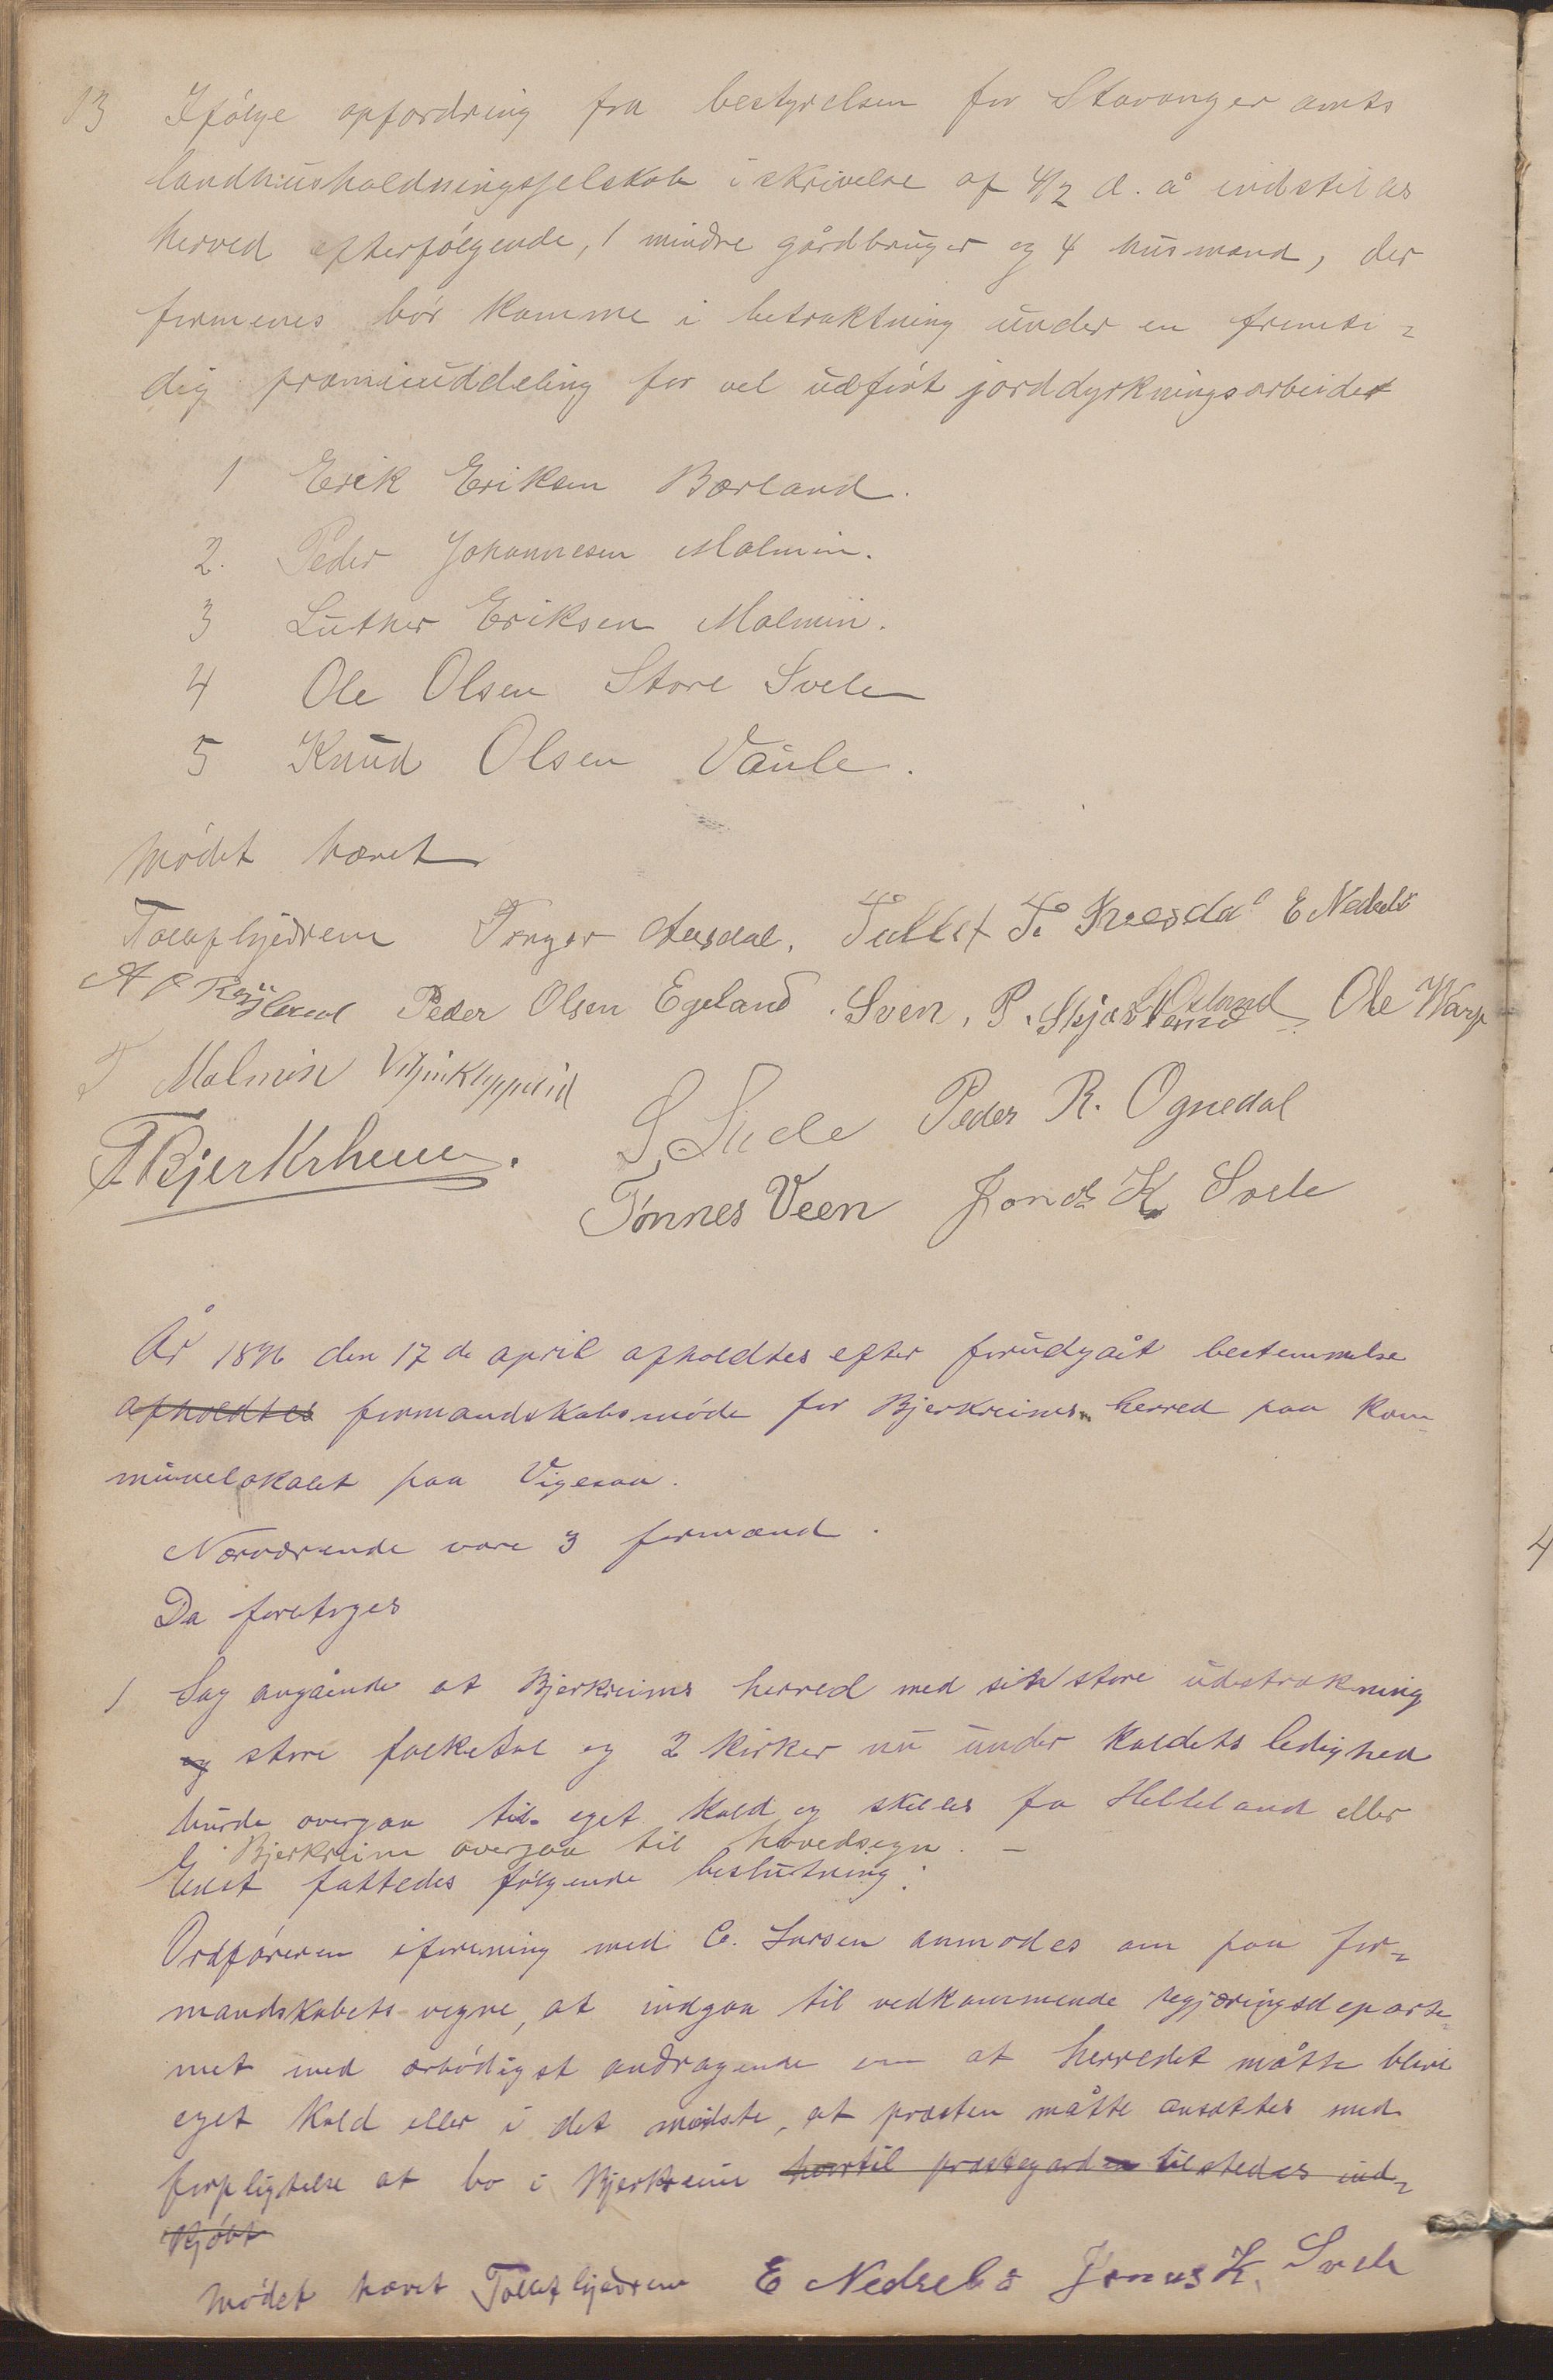 13 Ifølge opfordring fra bestyrelsen for Stavanger amts
landhusholdningsselskab i skrivelse af 4/2 d. å indstilles
herved efterfølgende, 1 mindre gårdbruger og 4 husmænd, der
formenes bør komme i betraktning under en fremti-
dig præmieuddeling for vel udført jorddyrkningsarbeidet
1 Erik Eriksen Bærland.
2. Peder Johannesen Malmin.
3 Luther Eriksen Malmin.
4 Ole Olsen Store Svela
5 Knud Olsen Vaule.
Mødet hævet
Tollef Gjedrem Tonger Ausdal. Tollef T. E Nedrebø
A P Røysland Peder Olsen Egeland. Sven. P. Ole Warp
T Malmin
T Bjerkrheim. S. Svele Peder R. Ognedal
Tønnes Veen Jonas K Svele
År 1896 den 17de april afholdtes efter forudgåt bestemmelse
afholdtes formandskabsmøde for Bjerkreims herred paa kom-
munelokalet paa Vigesaa.
Nærværende vare 3 formænd.
Da foretoges
1 Sag angående at Bjerkreims herred med sit store udstrækning
og store folketal og 2 kirker nu under kaldets ledighed
burde overgaa til eget kald og skilles fra Helleland eller
Bjerkreim overgaa til hovedsogn. —
Enst fattedes følgende beslutning:
Ordføreren iforening med C. Larsen anmodes om paa for-
mandskabets vegne, at indgaa til vedkommende regjæringsdeparte-
met med ærbødigst andragende om at herredet måtte blive
eget kald eller i det mindste, at præsten måtte ansættes med
forpligtelse at bo i Bjerkreim hvortil præstegarden tilstedes ind-
kjøbt
Mødet hævet Tollef Gjedrem E Nedrebø Jonas K. Svele